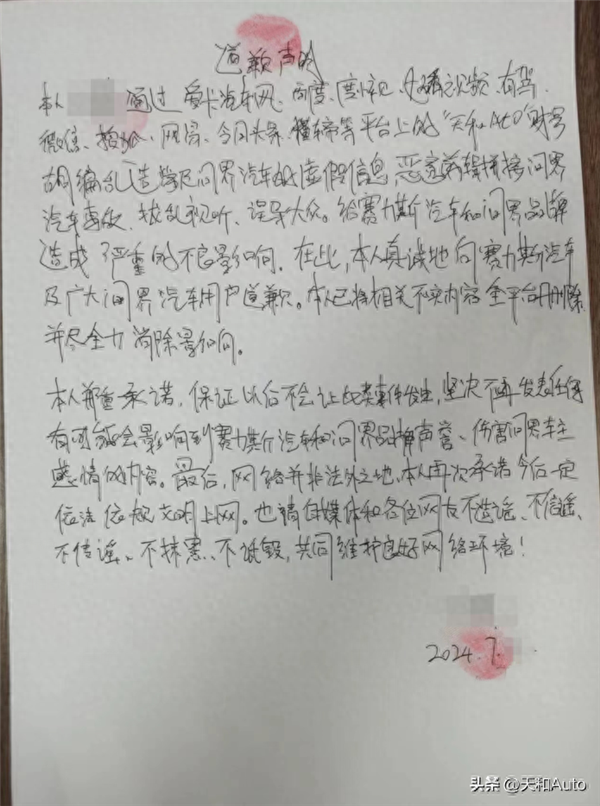 道歉声明
本人 通过爱卡汽车网、百度、度小视、好看视频、有驾、
微信、搜狐、网易、今日头条、懂车帝等平台上的"天和Auto"财号
胡编乱造诋毁问界汽车的虚假信息,恶意剪辑拼接问界
汽车事故,扰乱视听、误导大众。给赛力斯汽车和问界品牌
造成了严重的不良影响。在此,本人真诚地向赛力斯汽车
及广大问界汽车用户道歉。本人已将相关不实内容全平台删除
并尽全力消除影响。
本人郑重承诺,保证以后不会让此类事件发生,坚决不再发表任何
有可能会影响到赛力斯汽车和问界品牌声誉、伤害问界车主
感情的内容。最后,网络并非法外之地,本人再次承诺今后一定
依法依规文明上网。也请自媒体和各位网友不造谣、不信谣、
不传谣、不抹黑、不诋毁,共同维护良好网络环境!
2024.7.
头条 @天和Auto